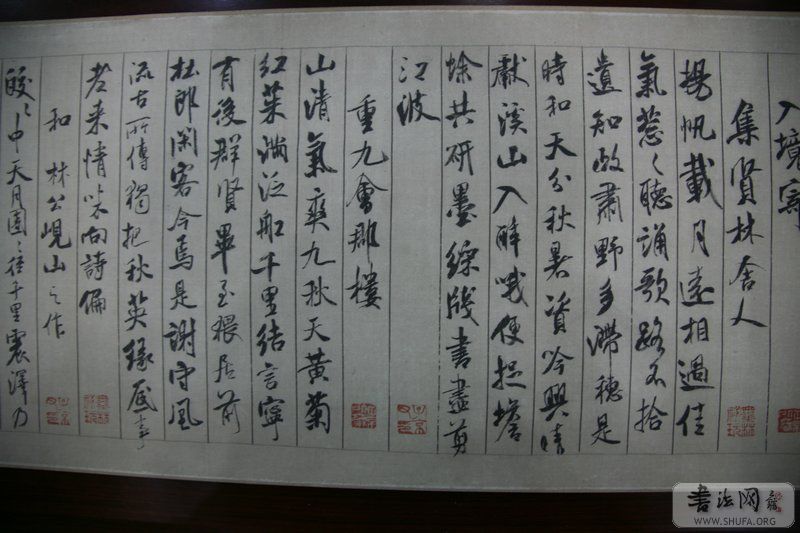 入境寄
集賢林舍人
揚帆載月遠相過佳
氣葱〻聽誦歌路不拾
遺知政肅野多滯穗是
時和天分秋暑資吟興晴
獻溪山入醉哦便捉蟾
蜍共研墨綵牋書盡剪
江波
重九會郡樓
山清氣爽九秋天黄菊
紅茱滿泛船千里結言寧
有後群賢畢至猥居前
杜郎閑客今焉是謝守風
流古所傳獨把秋英緣底事
老來情味向詩偏
和林公峴山之作
皎〻中天月團〻徑千里震澤乃
書法网
WWW.SHUFA.ORG